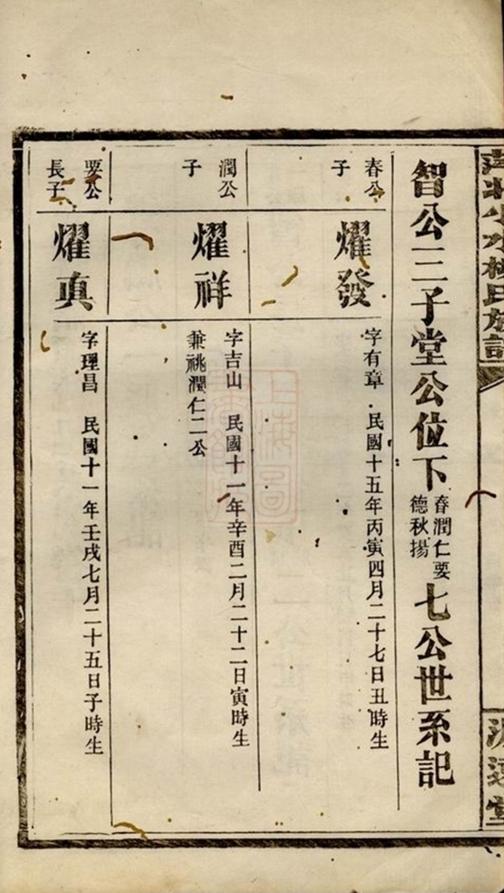 氏族譜
遠堂
智公三子堂公位下
春潤仁要
德秋揚
七公世系記
春公
子
燿發
字有章 民國十五年丙寅四月二十七日丑時生
潤公
子
燿祥
字吉山 民國十一年辛酉二月二十二日寅時生
兼祧潤仁二公
要公
長子
燿眞
字理昌 民國十一年壬戌七月二十五日子時生